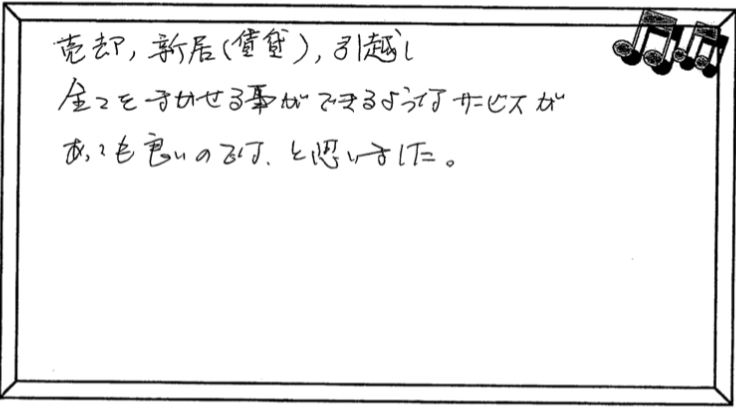 売却,新居(賃貸),引越し
全てをまかせる事ができるようなサービスが
あっても良いのでは、と思いました。